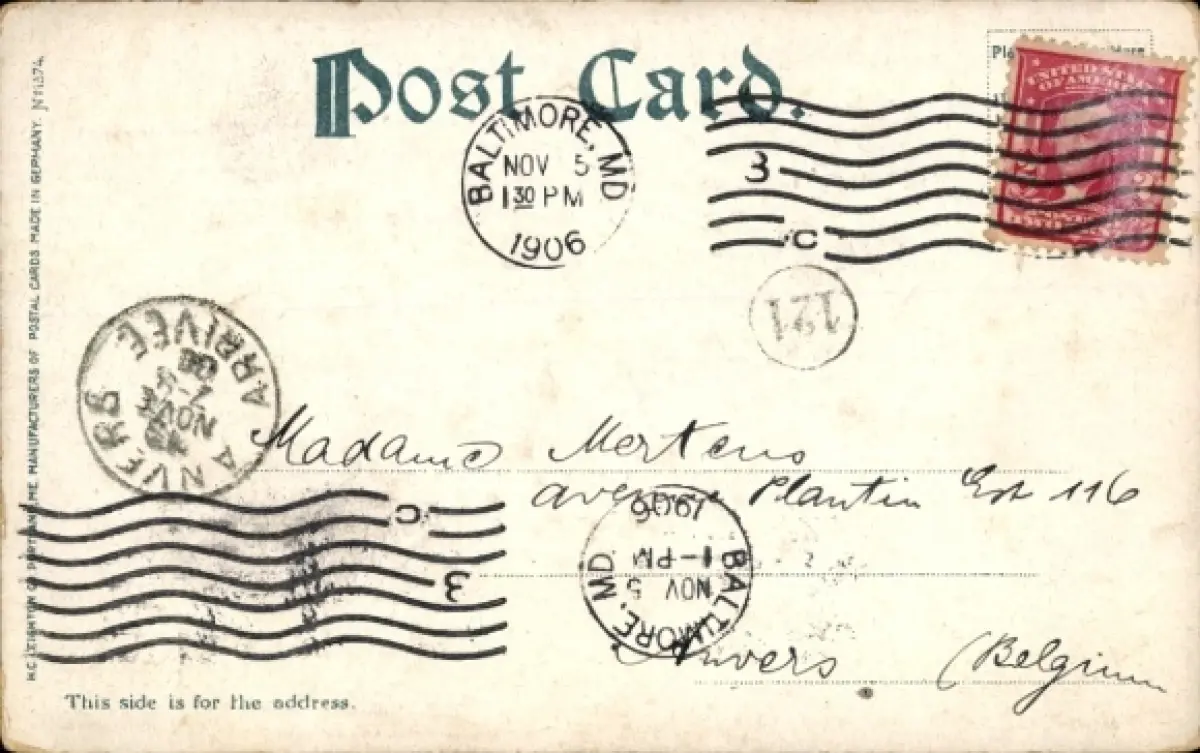 Post Card.
UNITED STATES
OF AMERICA
BALTIMORE, MD
NOV 5
1 30 PM
1906
3
C
121
ANVERS
ARRIVEE
NOV
06
Madame Mertens
avenue Plantin 116
C
3
BALTIMORE, MD.
NOV 5
1-PM
1906
Anvers (Belgium
This side is for the address.
MANUFACTURERS OF POSTAL CARDS MADE IN GERMANY.